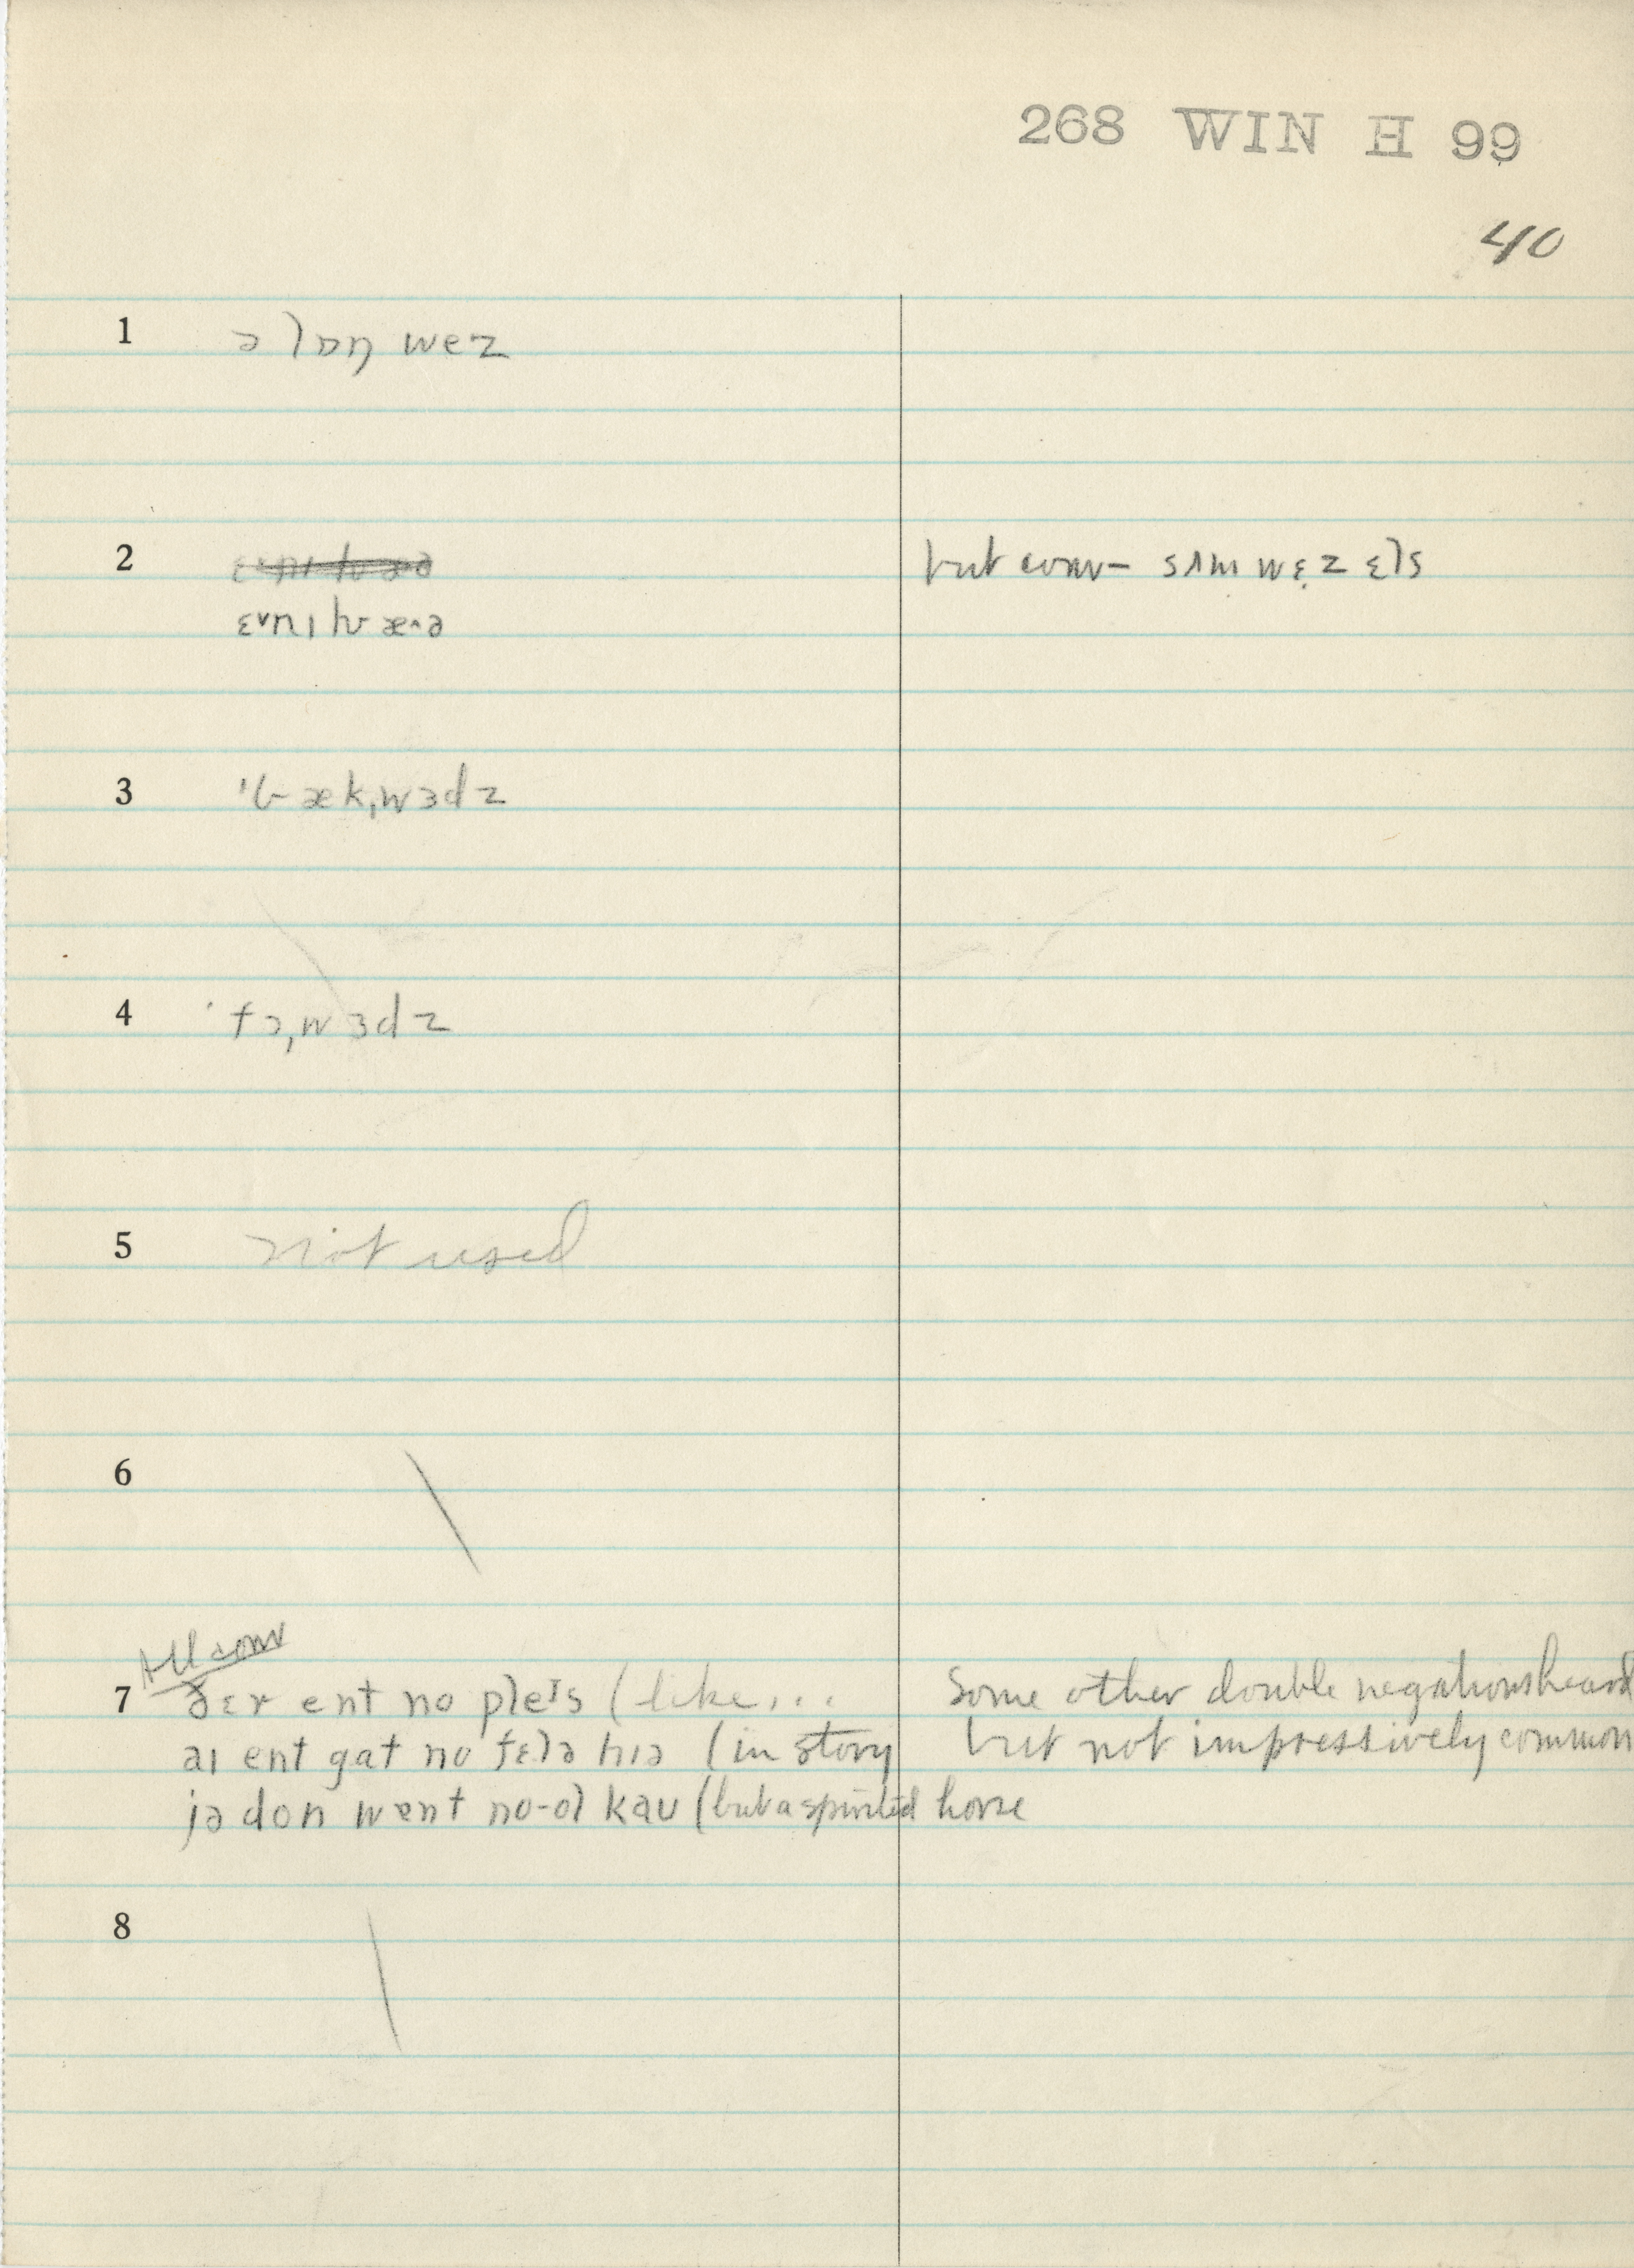 268 WIN H 99
40
1 ə lɒŋ wez
2 ɛvnɪhwæ^ə but conv– sʌm wɛ̣z ɛls
3 'bæk,wɜdz
4 'fɔ,wɜdz
5 not used
6
All conv
7 ðɛr ent no pleɪs (like... Some other double negations heard
aɪ ent gat no fɛlə hɪə (in story but not impressively common
jə don wɒnt no-ol kaʊ (but a spirited horse
8